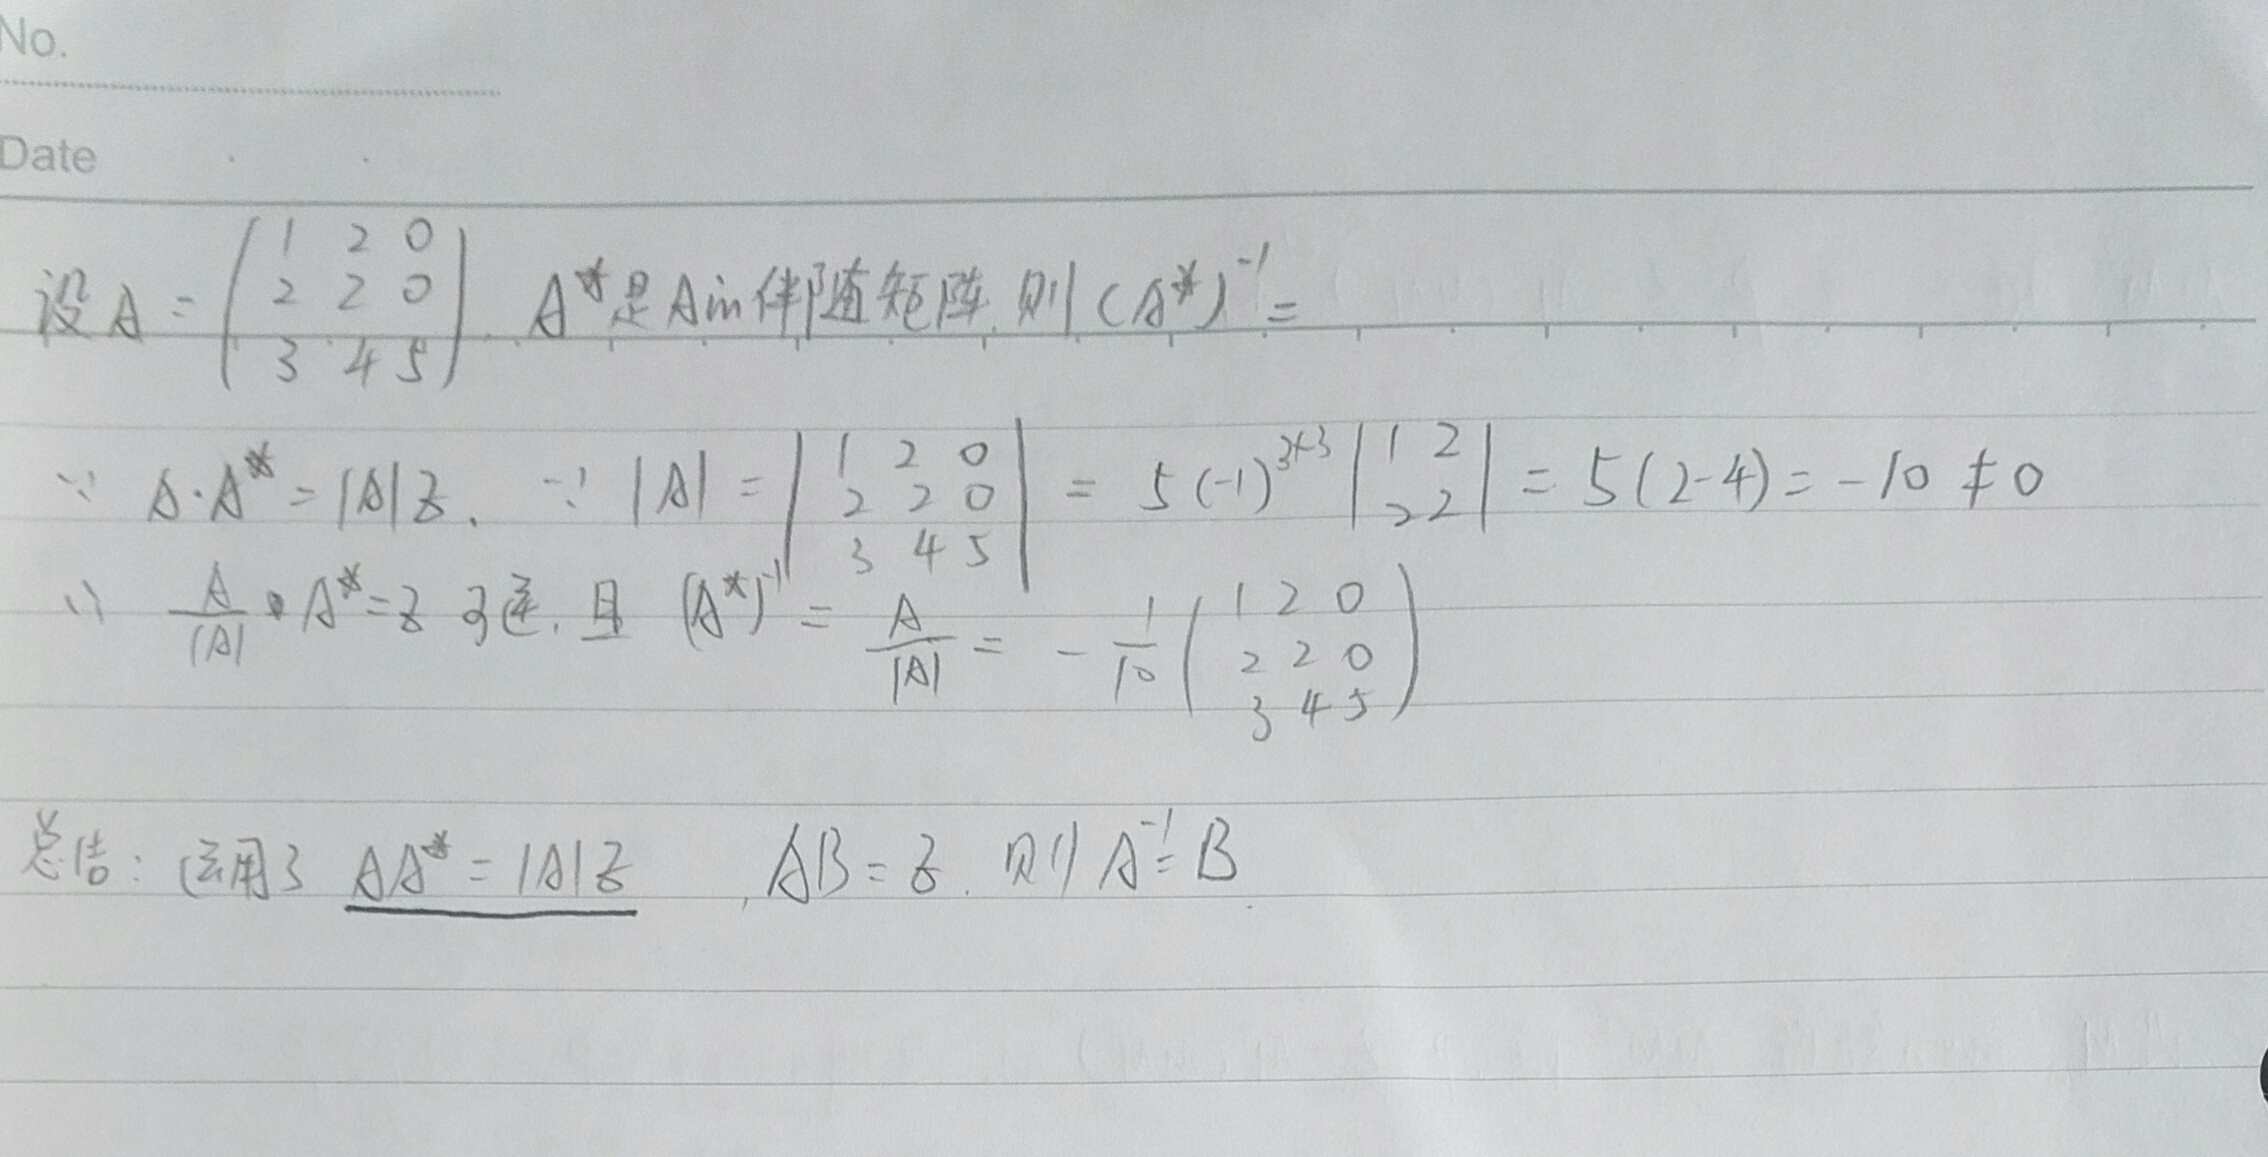 No.
Date
设 A = \begin{pmatrix} 1 & 2 & 0 \\ 2 & 2 & 0 \\ 3 & 4 & 5 \end{pmatrix}. A*是A的伴随矩阵. 则 (A*)⁻¹ =
∵ A·A* = |A|E. ∵ |A| = \begin{vmatrix} 1 & 2 & 0 \\ 2 & 2 & 0 \\ 3 & 4 & 5 \end{vmatrix} = 5(-1)^{3+3} \begin{vmatrix} 1 & 2 \\ 2 & 2 \end{vmatrix} = 5(2-4) = -10 ≠ 0
∴ \frac{A}{|A|}·A* = E 可逆. 且 (A*)⁻¹ = \frac{A}{|A|} = -\frac{1}{10} \begin{pmatrix} 1 & 2 & 0 \\ 2 & 2 & 0 \\ 3 & 4 & 5 \end{pmatrix}
总结: 运用了 AA* = |A|E , AB = E. 则 A⁻¹ = B